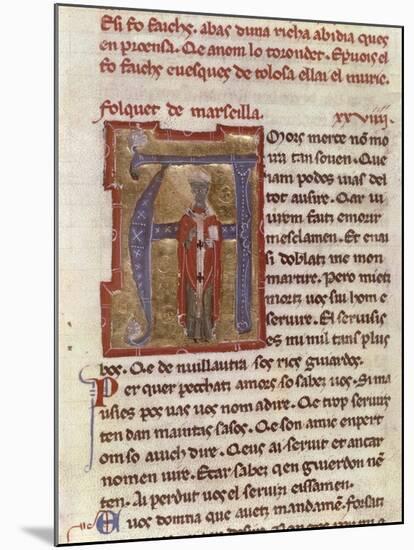 Esi fo faichs. abas duna richa abidia ques
en proensa. Qe anom lo torondet. Epuois el
fo faichs euesques de tolosa ellai el muric.
folquet de marseilla. xxviiij.
A
Mors merce nō mo
ira tan souen. Que
iam podos uias del
tot aucire. Car ui
uirem faitz e morir
mesclamen. Et enai
si doblatz me mon
martire. Pero mieitz
mortz uos sui hom e
seruire. El seruisis
es mi mil tans plus
bos. Qe de nuillautra ses rics guiardos.
Per quer pecchatz amors so sabez uos. Si ma
usies pos uas uos nom adire. Qe trop seruirs
ten dan maintas sasos. Qe son amic enpert
om so auch dire. Qeus ai seruit et ancar
nomen uire. Et car sabez qen guierdon nē
ten. Ai perdut uos el seruizi eissamen.
uos domna que auetz mandamē. Forsatz